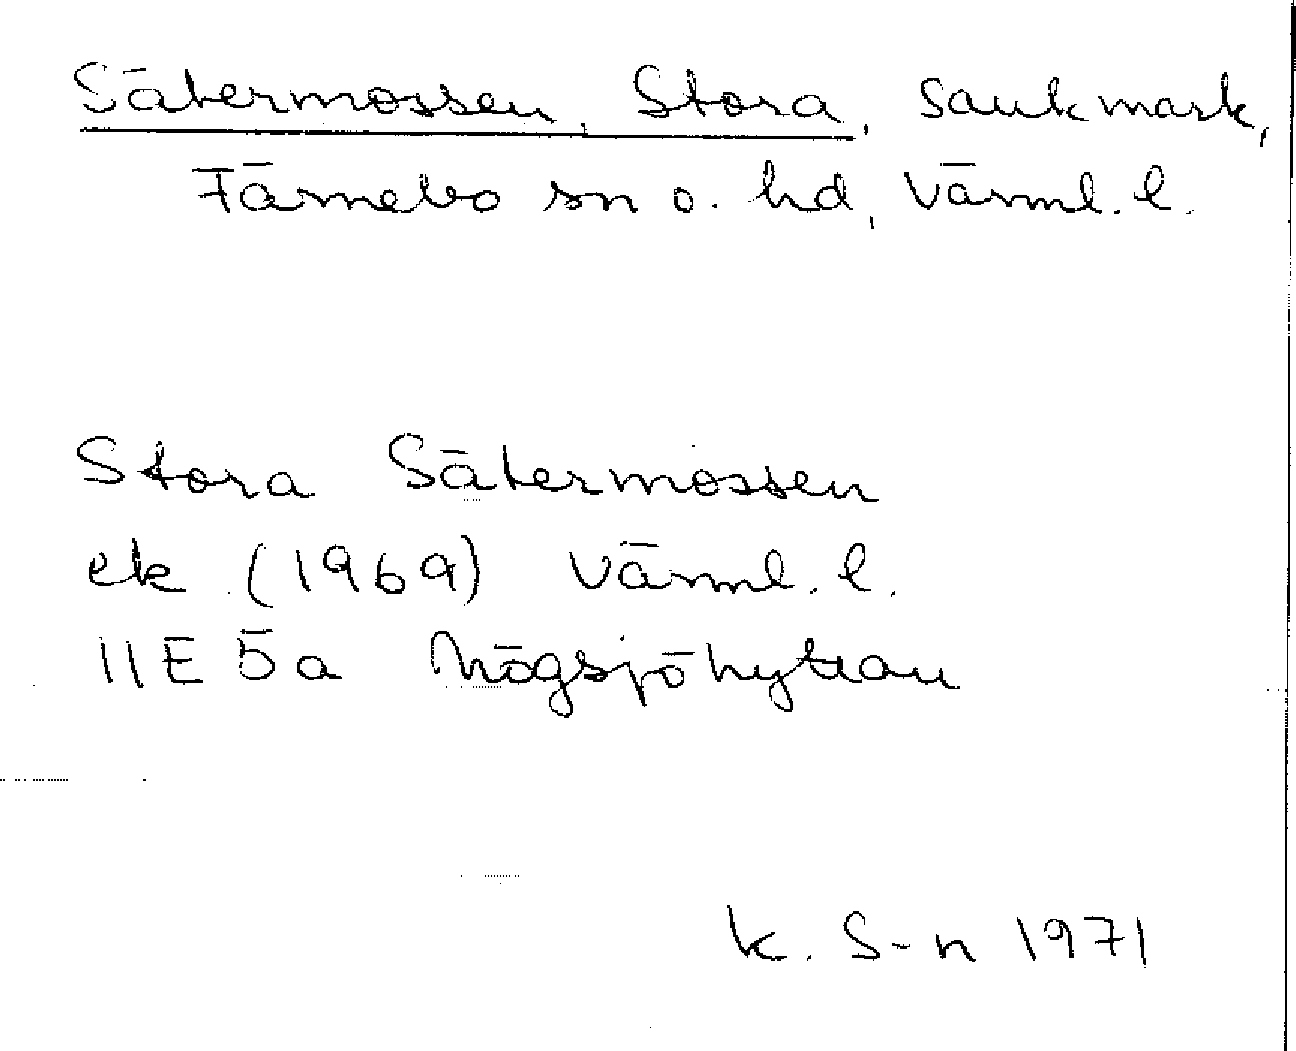 Sätermossen, Stora, sankmark,
Färnebo sn o. hd, Värml. l.
Stora Sätermossen
ek (1969) Värml. l.
11E 5a Högsjöhyttan
K. S-n 1971